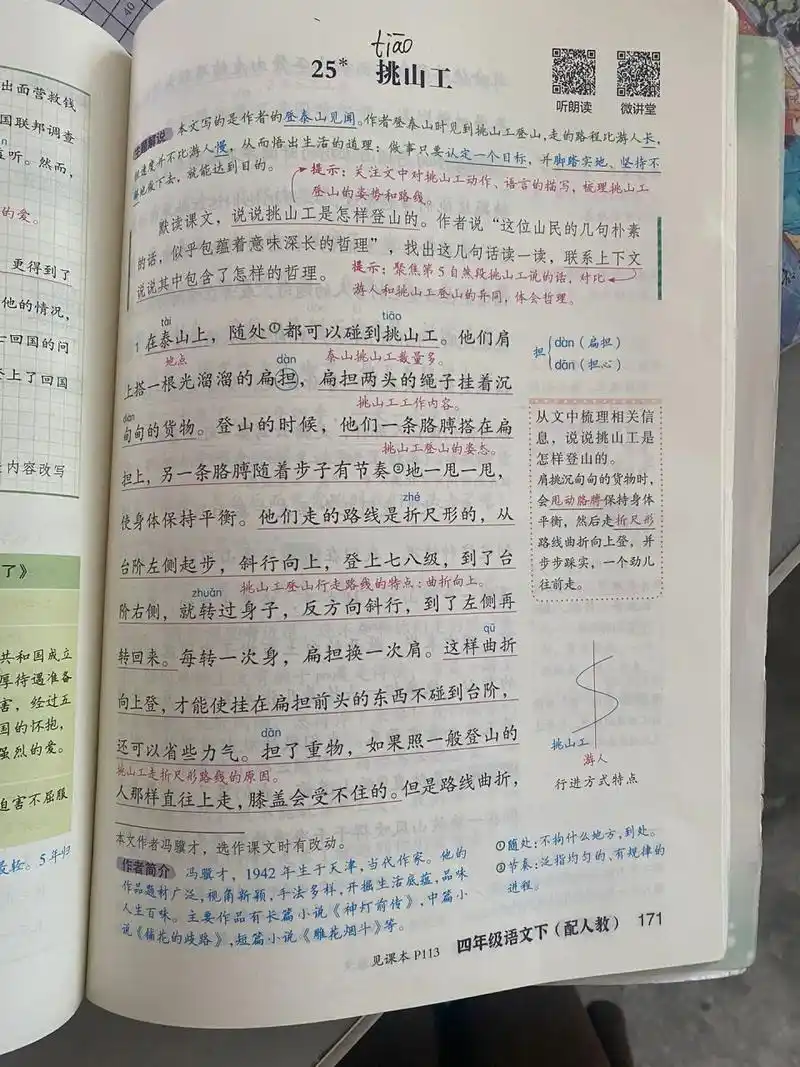 tiāo
25* 挑山工
听朗读 微讲堂
主题解说 本文写的是作者的登泰山见闻。作者登泰山时见到挑山工登山,走的路程比游人长,
但速度并不比游人慢,从而悟出生活的道理:做事只要认定一个目标,并脚踏实地、坚持不
懈地做下去,就能达到目的。
提示:关注文中对挑山工动作、语言的描写,梳理挑山工
登山的姿势和路线。
默读课文,说说挑山工是怎样登山的。作者说“这位山民的几句朴素
的话,似乎包蕴着意味深长的哲理”,找出这几句话读一读,联系上下文
说说其中包含了怎样的哲理。
提示:聚焦第5自然段挑山工说的话,对比
游人和挑山工登山的异同,体会哲理。
tài tiāo
1 在泰山上,随处①都可以碰到挑山工。他们肩
地点 dàn 泰山挑山工数量多。
上搭一根光溜溜的扁担,扁担两头的绳子挂着沉
diàn 挑山工工作内容。
甸甸的货物。登山的时候,他们一条胳膊搭在扁
挑山工登山的姿态。
担上,另一条胳膊随着步子有节奏②地一甩一甩,
zhé
使身体保持平衡。他们走的路线是折尺形的,从
台阶左侧起步,斜行向上,登上七八级,到了台
zhuǎn 挑山工登山行走路线的特点:曲折向上。
阶右侧,就转过身子,反方向斜行,到了左侧再
qū
转回来。每转一次身,扁担换一次肩。这样曲折
向上登,才能使挂在扁担前头的东西不碰到台阶,
dān
还可以省些力气。担了重物,如果照一般登山的
挑山工走折尺形路线的原因。
人那样直往上走,膝盖会受不住的。但是路线曲折,
担 dàn(扁担)
dān(担心)
从文中梳理相关信
息,说说挑山工是
怎样登山的。
肩挑沉甸甸的货物时,
会甩动胳膊保持身体
平衡,然后走折尺形
路线曲折向上登,并
步步踩实,一个劲儿
往前走。
挑山工
游人
行进方式特点
本文作者冯骥才,选作课文时有改动。
作者简介 冯骥才,1942年生于天津,当代作家。他的
作品题材广泛,视角新颖,手法多样,开掘生活底蕴,品味
人生百味。主要作品有长篇小说《神灯前传》,中篇小
说《铺花的歧路》,短篇小说《雕花烟斗》等。
①随处:不拘什么地方,到处。
②节奏:泛指均匀的、有规律的
进程。
见课本 P113 四年级语文下(配人教) 171
出面营救钱
国联邦调查
监听。然而,
的爱。
更得到了
他的情况,
七回国的问
登上了回国
内容改写
了》
共和国成立
厚待遇准备
害,经过五
国的怀抱,
强烈的爱。
迫害不屈服
5年归
40